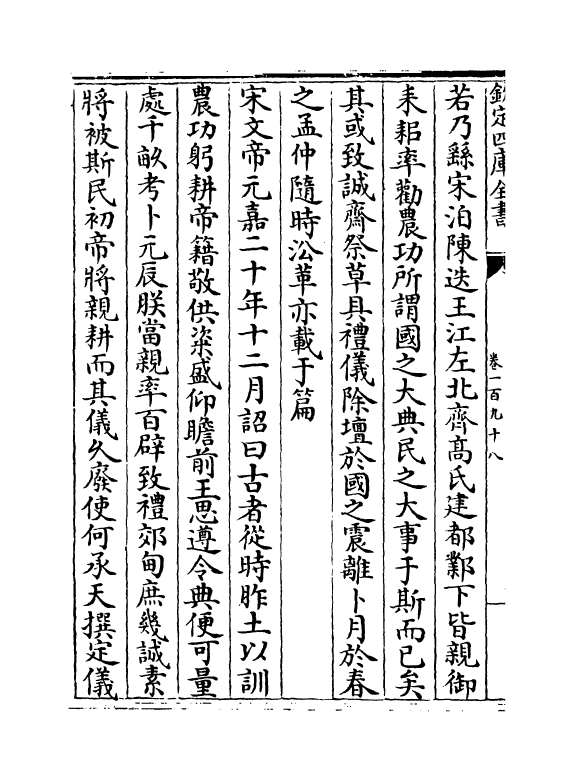 欽定四庫全書
卷一百九十八
若乃繇宋洎陳迭王江左北齊髙氏建都鄴下皆親御
耒耜率勸農功所謂國之大典民之大事于斯而已矣
其或致誠齋祭草具禮儀除壇於國之震離卜月於春
之孟仲隨時㳂革亦載于篇
宋文帝元嘉二十年十二月詔曰古者從時脈土以訓
農功躬耕帝籍敬供粢盛仰瞻前王思遵令典便可量
處千畝考卜元辰朕當親率百辟致禮郊甸庶幾誠素
將被斯民初帝將親耕而其儀久廢使何承天撰定儀